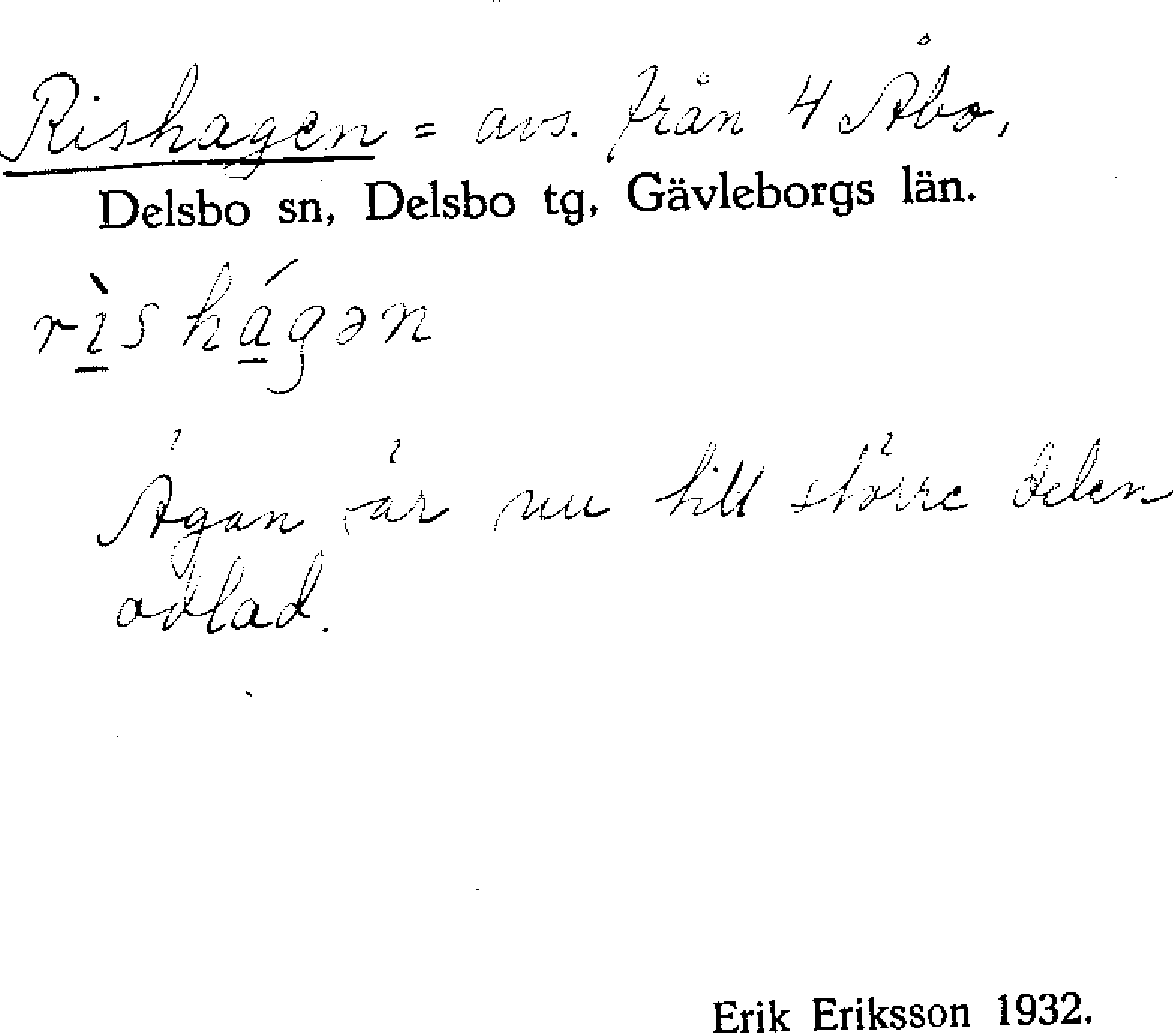 Rishagen = avs. från 4 Åbo,
Delsbo sn, Delsbo tg, Gävleborgs län.
rìshágən
Ägan är nu till större delen
odlad.
Erik Eriksson 1932.